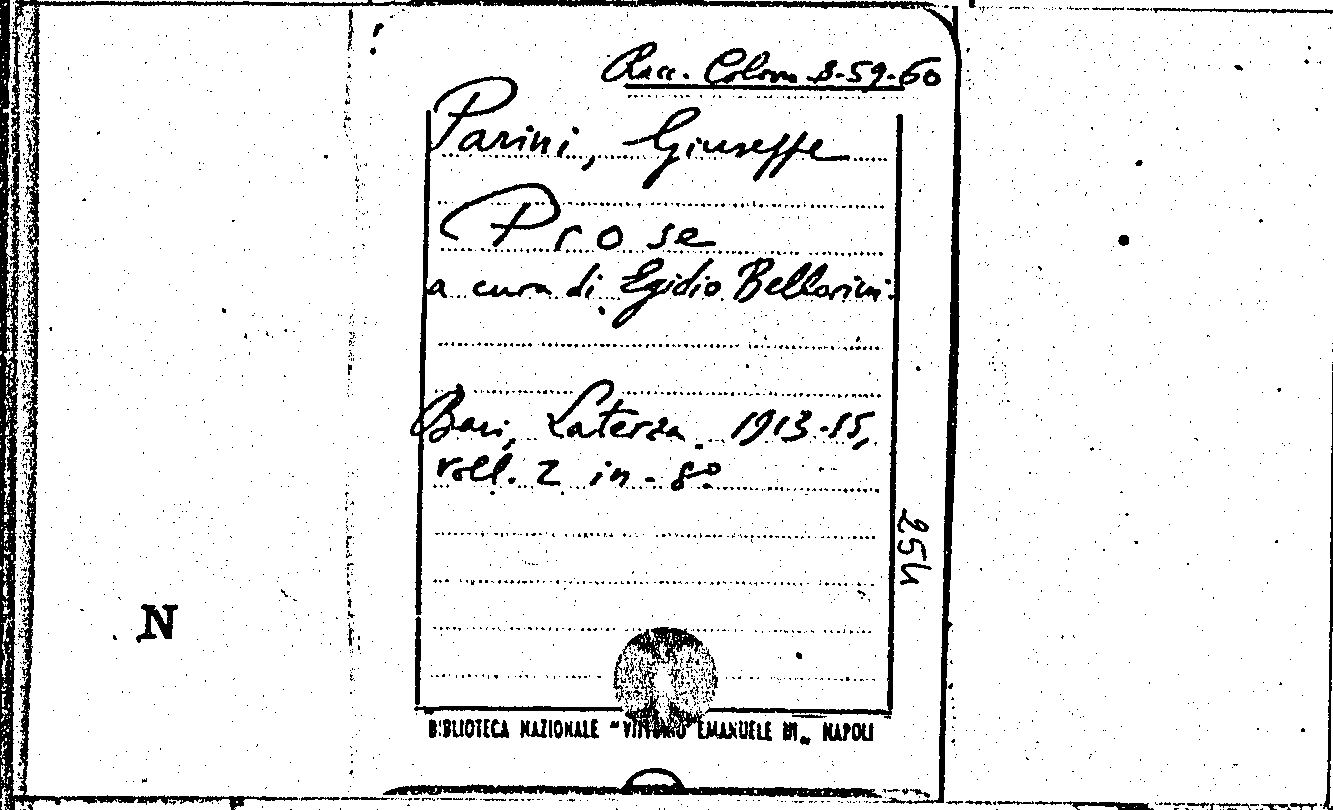 Racc. Colonn 8-59-60
Parini, Giuseppe
Prose
a cura di Egidio Bellorini.
Bari, Laterza. 1913-15,
voll. 2 in-8°
254
N
BIBLIOTECA NAZIONALE "VITTORIO EMANUELE III" NAPOLI